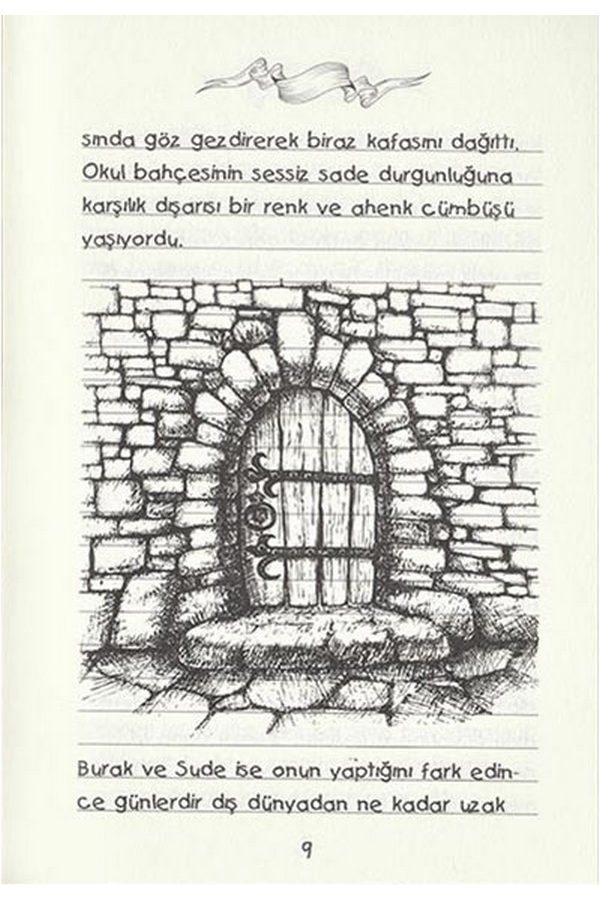 sında göz gezdirerek biraz kafasını dağıttı.
Okul bahçesinin sessiz sade durgunluğuna
karşılık dışarısı bir renk ve ahenk cümbüşü
yaşıyordu.
Burak ve Sude ise onun yaptığını fark edin-
ce günlerdir dış dünyadan ne kadar uzak
9